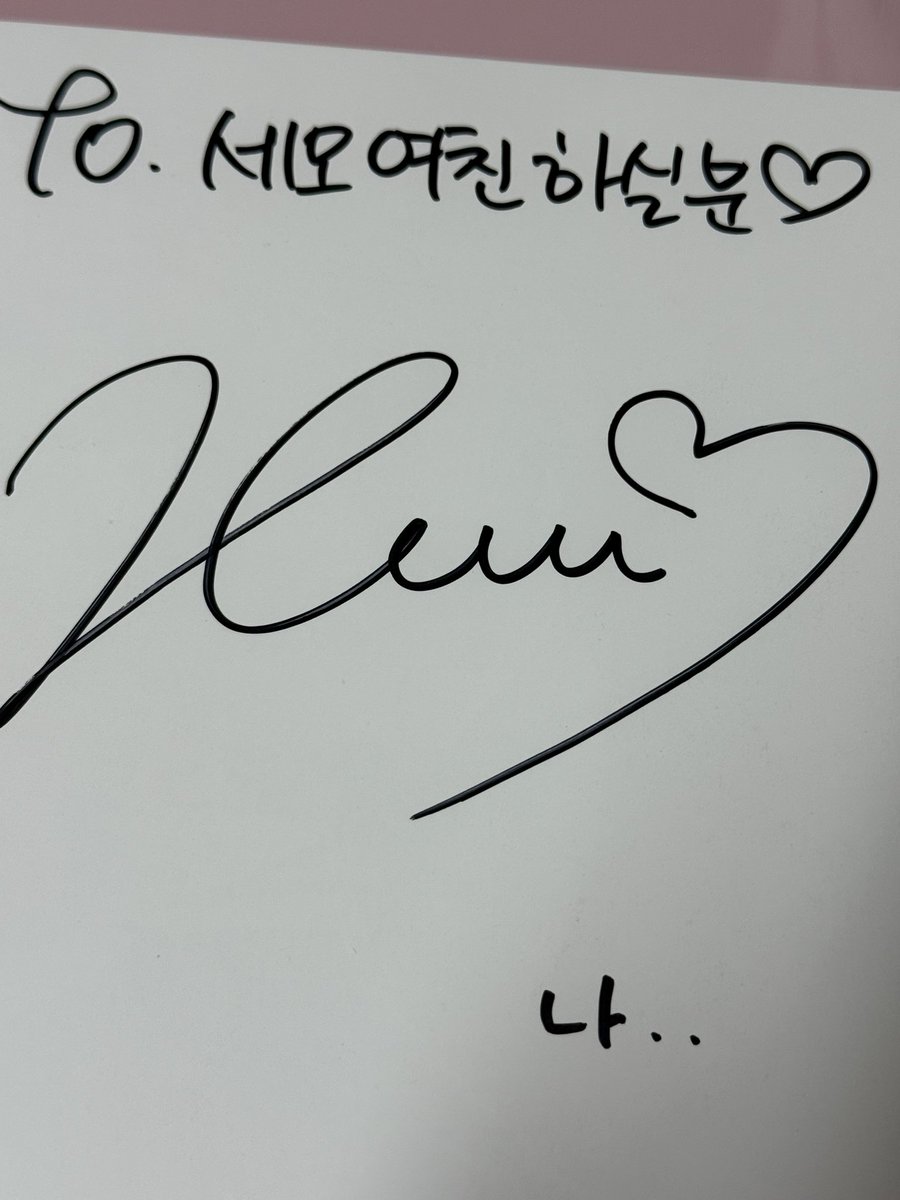 To. 세모 여친 하실분♡
나..